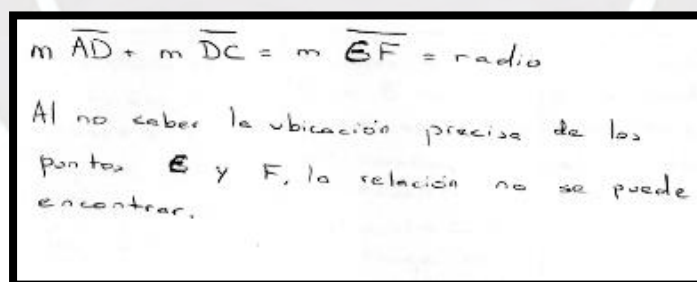 m AD + m DC = m EF = radio
Al no saber la ubicación precisa de los
puntos E y F, la relación no se puede
encontrar.